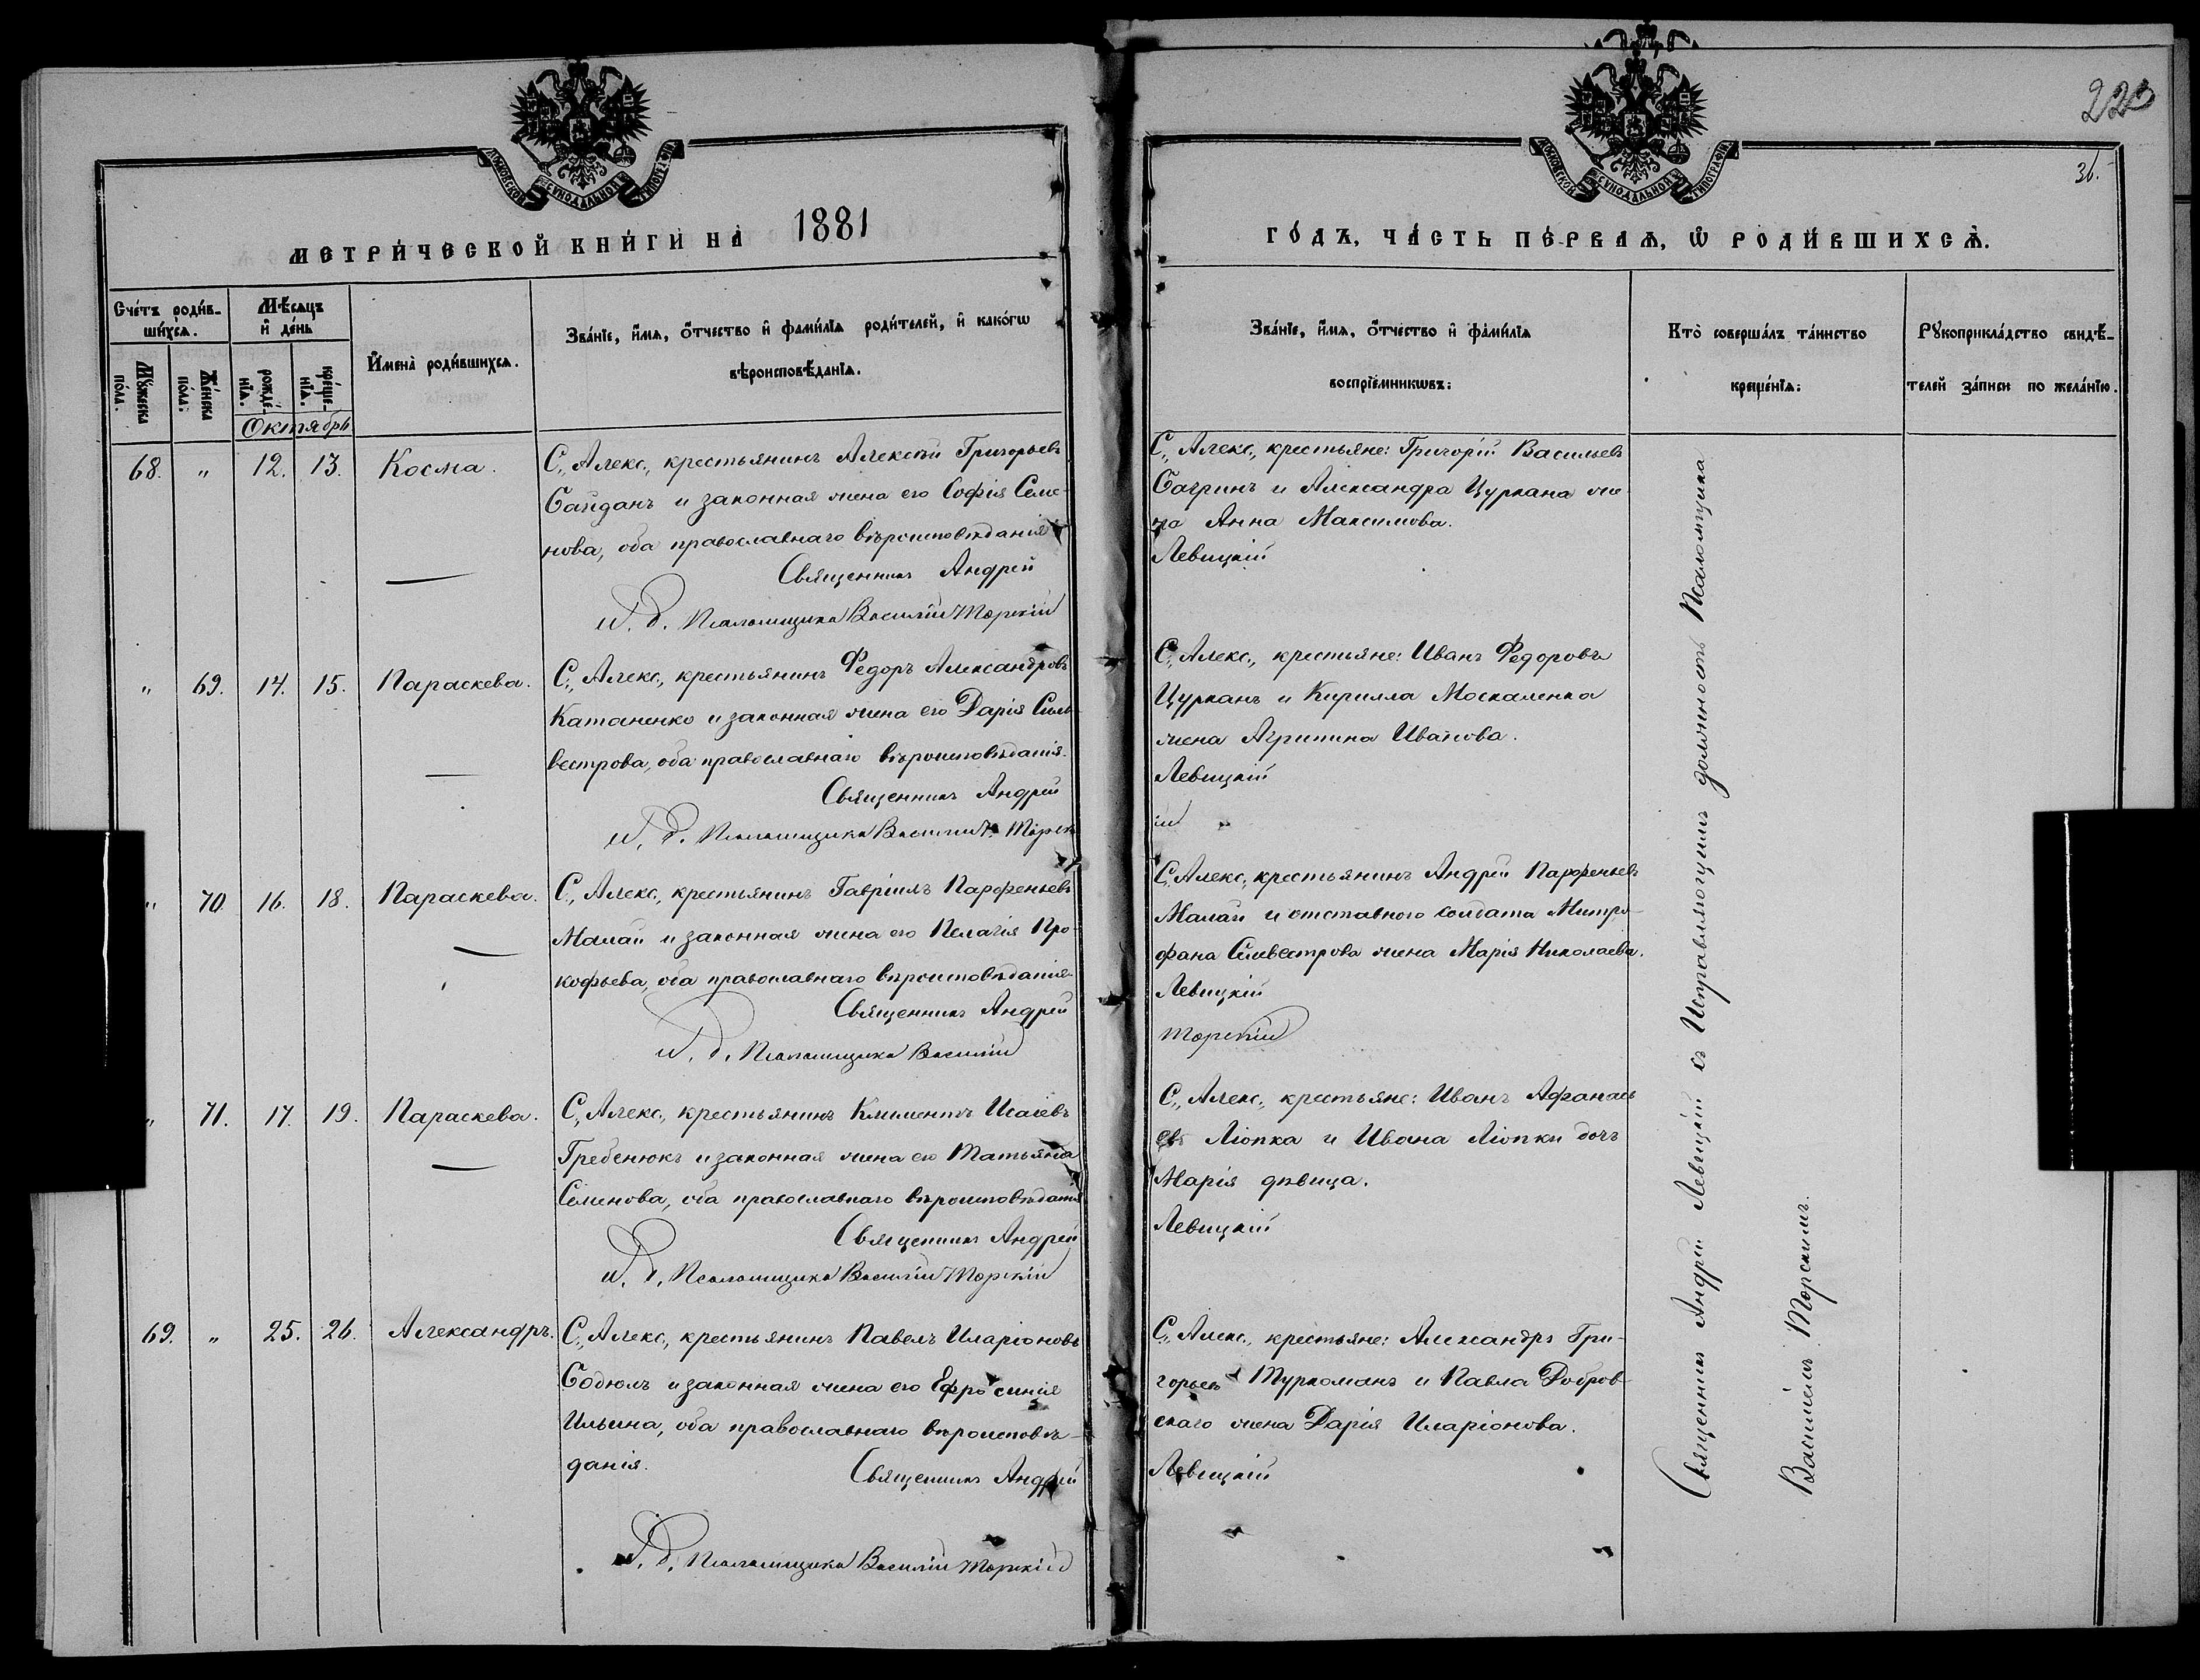 223
36.
МОСКОВСКОЙ СѴНОДАЛЬНОЙ ТИПОГРАФІИ
МОСКОВСКОЙ СѴНОДАЛЬНОЙ ТИПОГРАФІИ
МЕТРИ́ЧЕСКОЙ КНИ́ГИ НА̀ 1881
ГО́ДЪ, ЧА́СТЬ ПЕ́РВАѦ, Ѡ҆ РОДИ́ВШИХСѦ̀.
Сче́тъ роди́в-
ших̾сѧ.
Мꙋ́жеска по́ла.
Же́нска по́ла.
Мѣ́сяцъ
и҆ де́нь
рожде́-
нїѧ.
креще́-
нїѧ.
Октябрь
И҆мена̀ роди́вшихсѧ.
Зва́нїе, и҆́мѧ, ѻ҆́тчество и҆ фами́лїѧ роди́телей, и҆ како́гѡ
вѣроисповѣ́данїѧ.
Зва́нїе, и҆́мѧ, ѻ҆́тчество и҆ фами́лїѧ
воспрїе́мникѡвъ:
Кто̀ соверша́лъ та́инство
креще́нїѧ:
Рꙋкоприкла́дство свидѣ́-
телей за́писи по жела́нїю.
68. " 12. 13. Косма.
С., Алекс., крестьянинъ Алексѣй Григорьевъ
Сайданъ и законная жена его Софія Семе-
нова, оба православнаго вѣроисповѣданія
Священникъ Андрей
И. д. Псаломщика Василій Торскій
С., Алекс., крестьяне: Григорій Васильевъ
Багринъ и Александра Цуркана же-
на Анна Максимова.
Левицкій
" 69. 14. 15. Параскева.
С., Алекс., крестьянинъ Федоръ Александровъ
Катаненко и законная жена его Дарія Силь-
вестрова, оба православнаго вѣроисповѣданія.
Священникъ Андрей
И. д. Псаломщика Василій Торск
С., Алекс., крестьяне: Иванъ Федоровъ
Цурканъ и Кирилла Москаленка
жена Агрипина Иванова.
Левицкій
ій
" 70 16. 18. Параскева.
С., Алекс., крестьянинъ Гавріилъ Парфеньевъ
Малай и законная жена его Пелагія Про-
кофьева, оба православнаго вѣроисповѣданія
Священникъ Андрей
И. д. Псаломщика Василій
С., Алекс., крестьянинъ Андрей Парфеньевъ
Малай и отставного солдата Митро-
фана Сильвестрова жена Марія Николаева.
Левицкій
Торскій
" 71. 17. 19. Параскева.
С., Алекс., крестьянинъ Климентъ Исаіевъ
Гребенюкъ и законная жена его Татьяна
Семенова, оба православнаго вѣроисповѣданія
Священникъ Андрей
И. д. Псаломщика Василій Торскій
С., Алекс., крестьяне: Иванъ Афанась
евъ Ліопка и Ивана Ліопки дочь
Марія дѣвица.
Левицкій
69. " 25. 26. Александръ.
С., Алекс., крестьянинъ Павелъ Иларіоновъ
Бодюлъ и законная жена его Ефросинія
Ильина, оба православнаго вѣроисповѣ-
данія.
Священникъ Андрей
И. д. Псаломщика Василій Торскій
С., Алекс., крестьяне: Александръ Гри-
горьевъ Туркоманъ и Павла Добров-
скаго жена Дарія Иларіонова.
Левицкій
Священникъ Андрей Левицкій съ Исправляющимъ должность Псаломщика
Василіемъ Торскимъ.